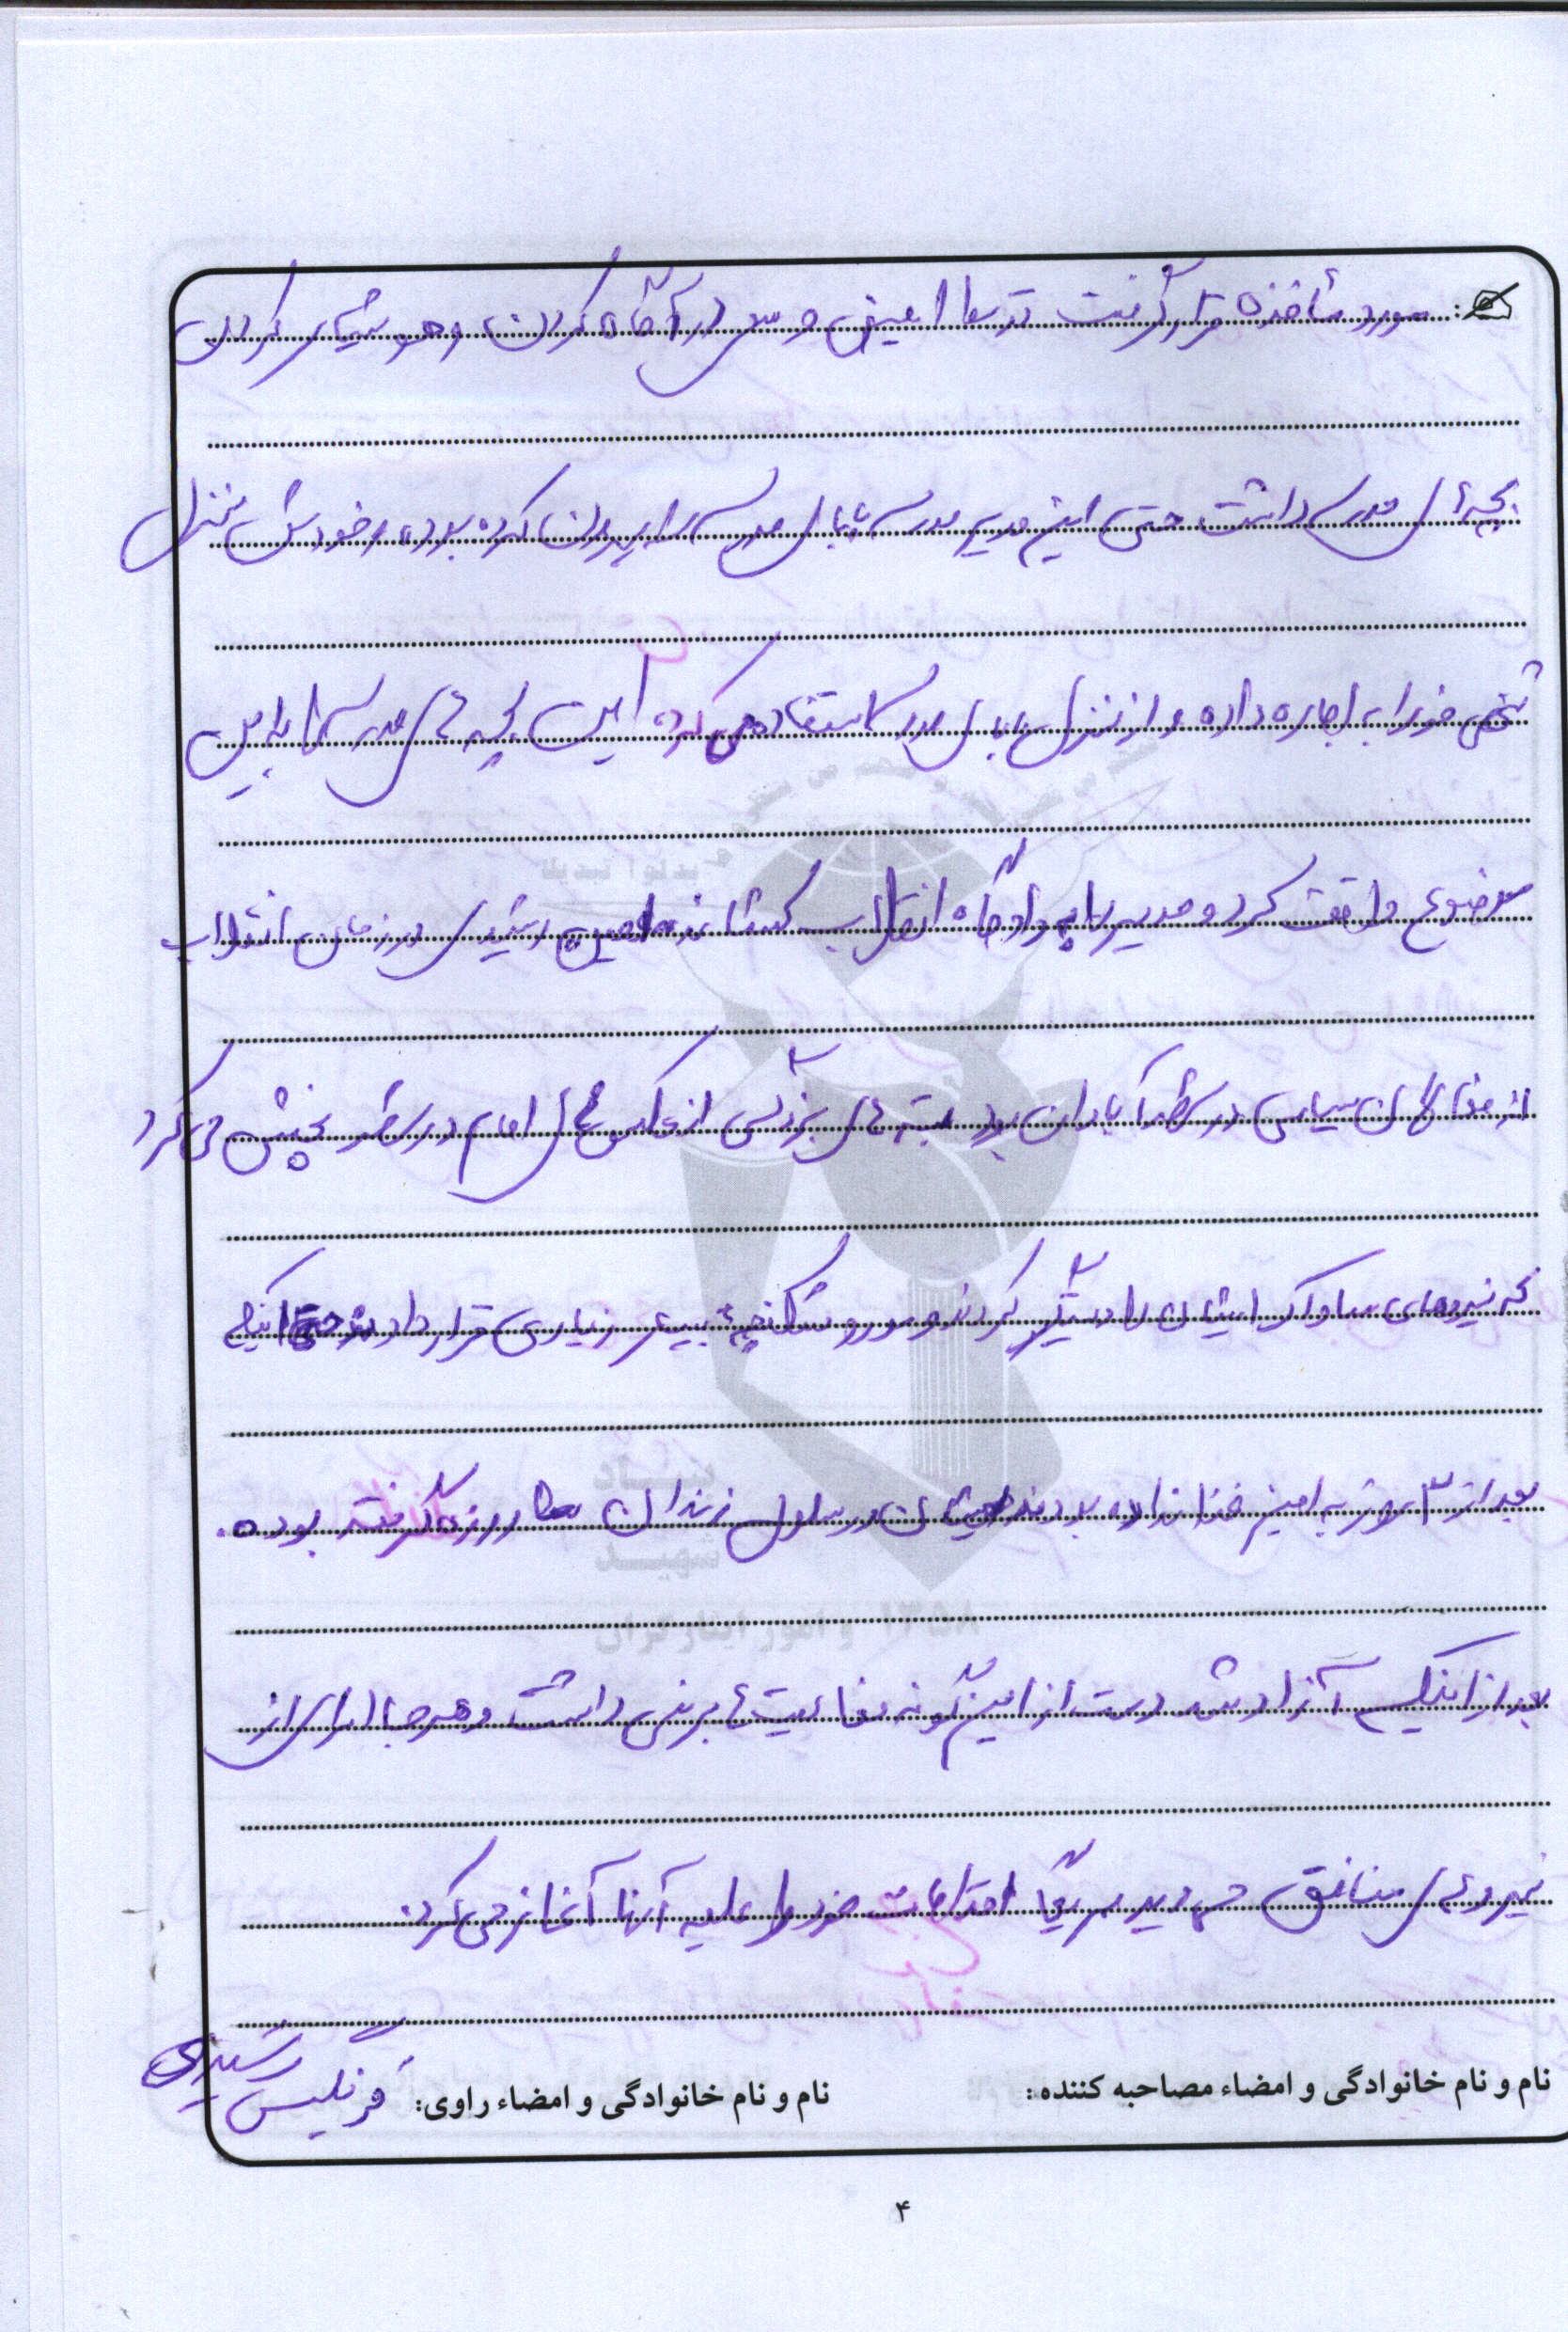 مورد مأخذه قرار گرفت توسط امین و سعی در آگاه کردن و هوشیار کردن
بچه‌های مدرسه داشت حتی این مدیر مدرسه بابای مدرسه را بیرون کرده بوده و خودش منزل
شخصی خود را به اجاره داده و از منزل بابای مدرسه استفاده می کرده امین بچه های مدرسه را به این
موضوع واقف کرد و مدیر را به دادگاه انقلاب کشاندند امین رشیدی در زمان انقلاب
از فعالان سیاسی در شهر آبادان بود بسته های بزرگی از عکس های امام در شهر پخش می کرد
که نیروهای ساواک ایشان را دستگیر کردند و مورد شکنجه زیادی قرار دادند حتی اینکه
بعد از ۳ روز به امین غذا نداده بودند ایشان در سلول زندان روزه گرفته بوده.
بعد از اینکه آزاد شد دست از این گونه فعالیت ها بر نمی داشت و هر جا از
نیروهای منافق می دید سریعاً اقدامات خود را علیه آنها آغاز می کرد.
نام و نام خانوادگی و امضاء مصاحبه کننده:
نام و نام خانوادگی و امضاء راوی: فرنگیس رشیدی
۴